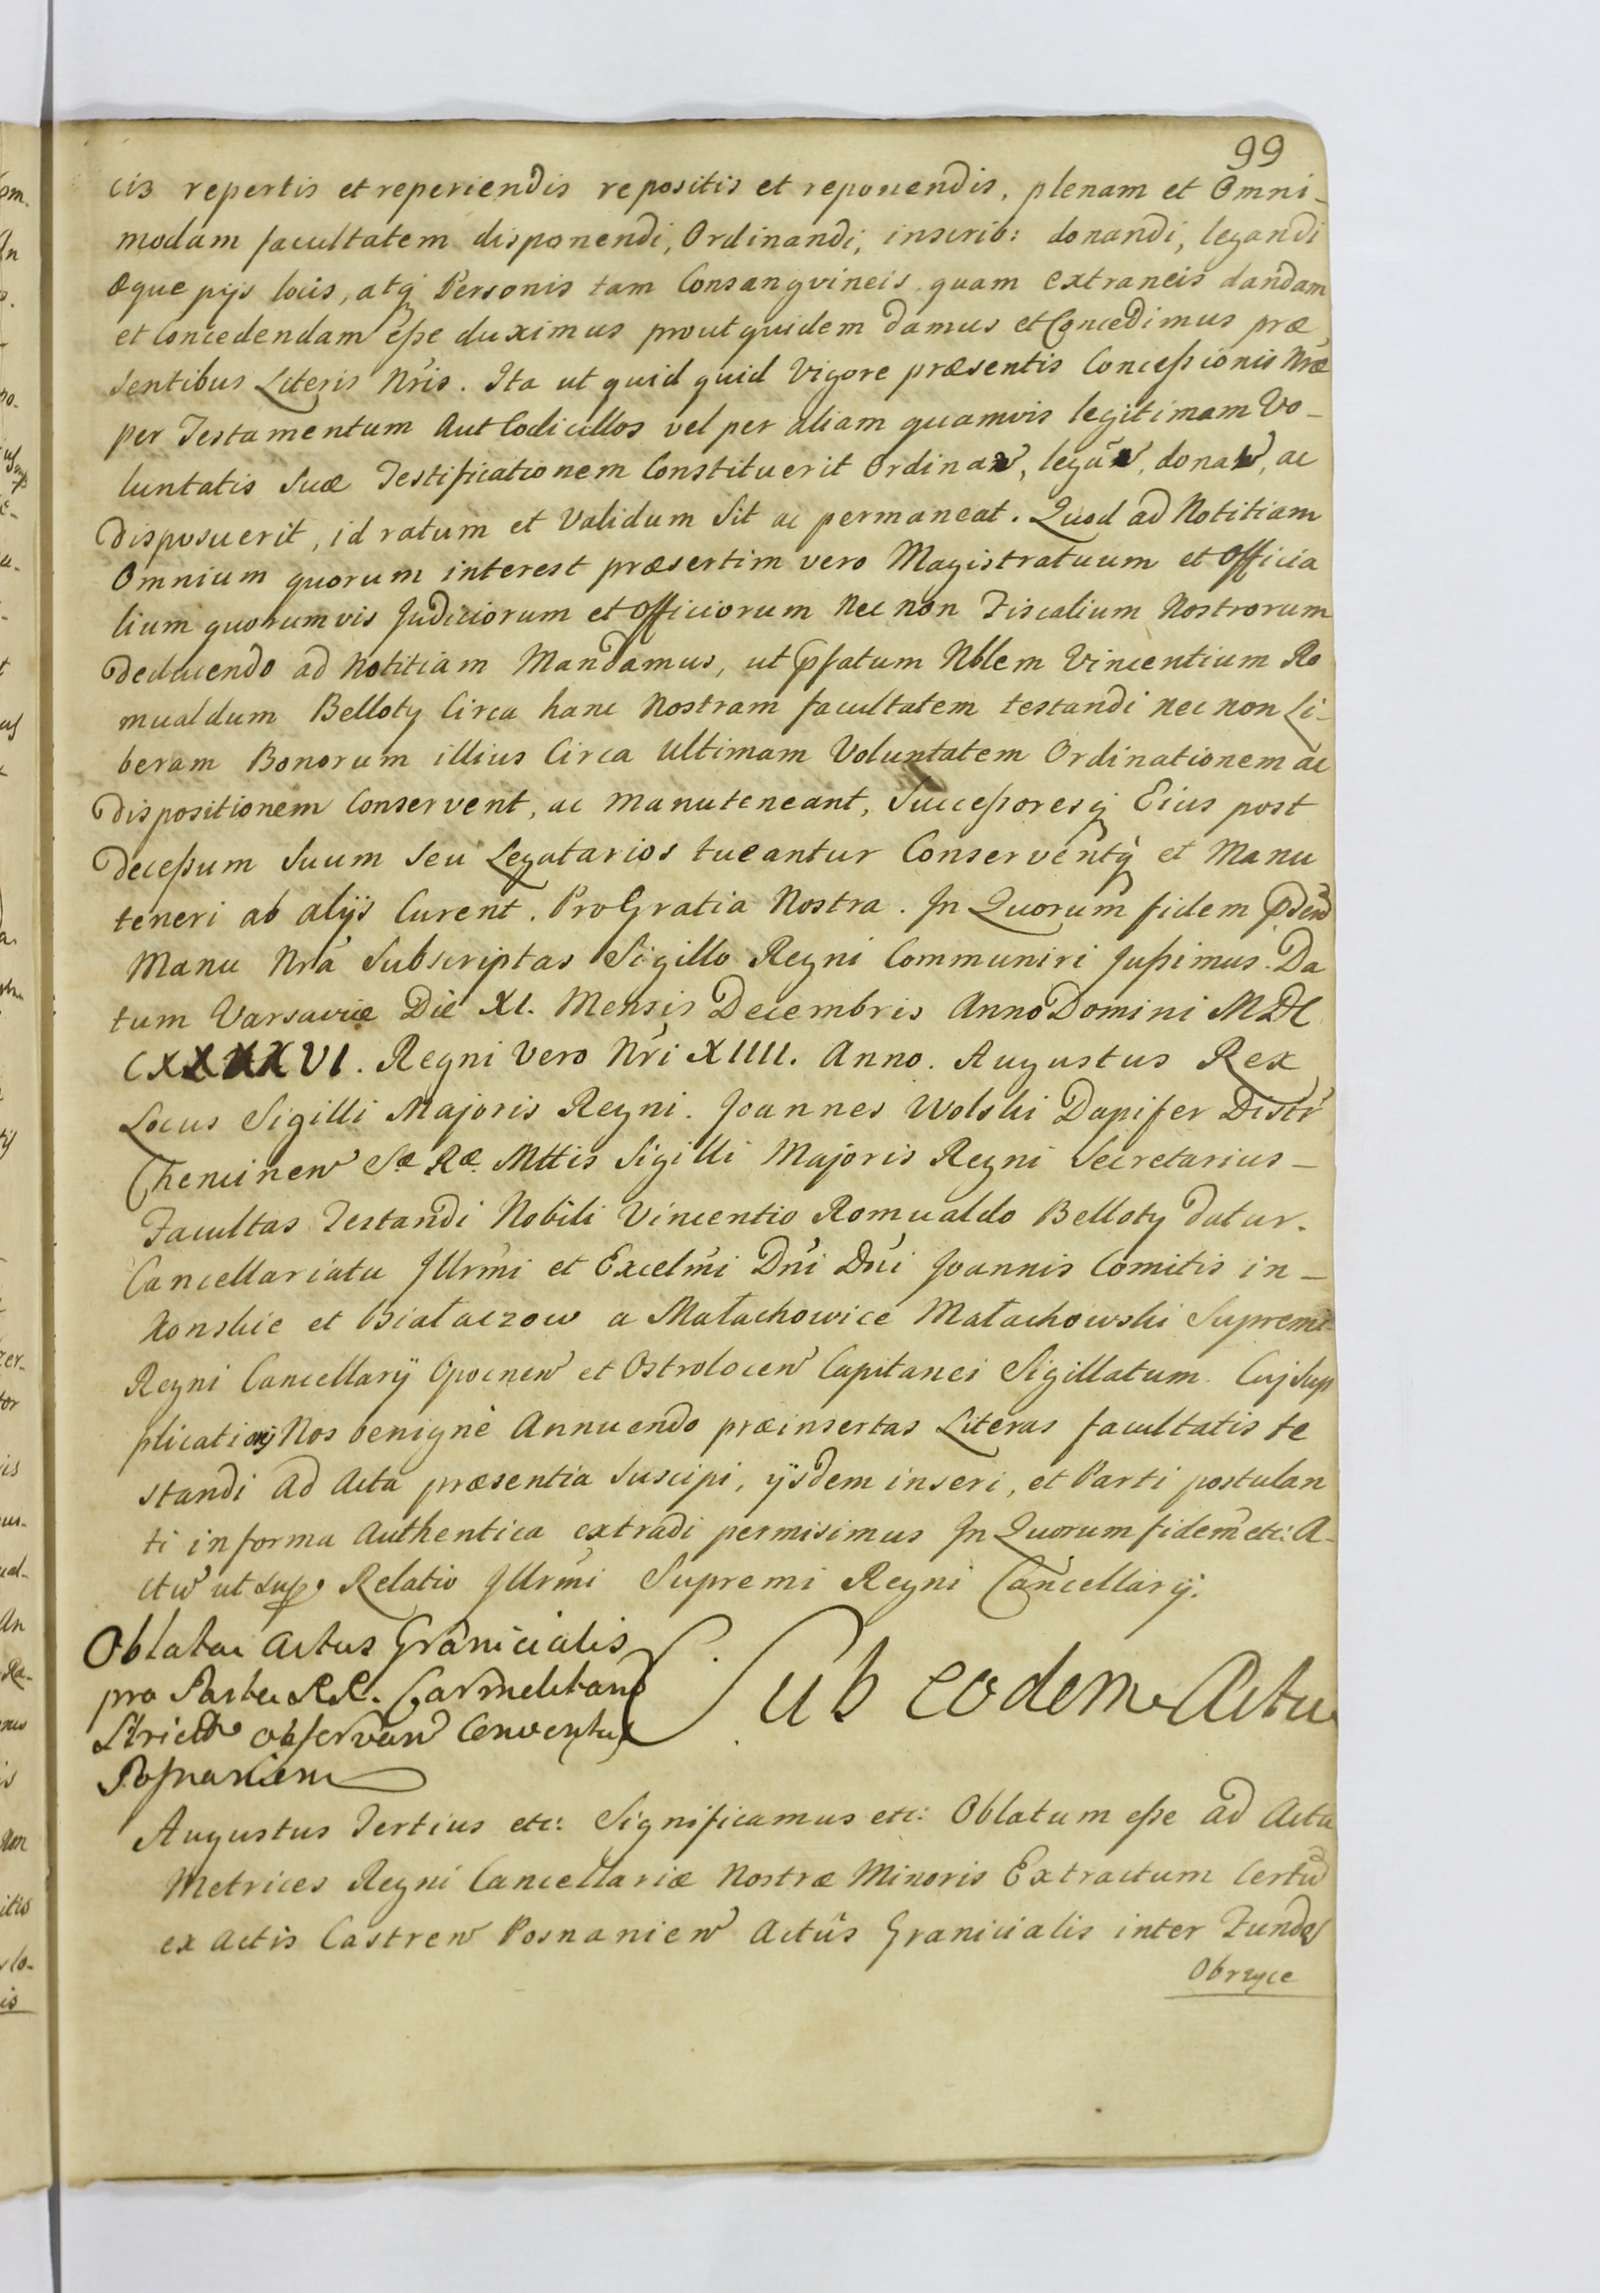 99
cis repertis et reperiendis repositis et reponendis, plenam et Omni-
modam facultatem disponendi, Ordinandi, inscrib: donandi, legandi
æque pijs locis, atq Personis tam Consangvineis quam extraneis dandam
et Concedendam eße duximus prout quidem damus et Concedimus præ
sentibus Literis Nris. Ita ut quid quid Vigore præsentis Conceßionis Nræ
per Testamentum Aut Codicillos vel per aliam quamvis legitimam Vo-
luntatis Suæ Testificationem Constituerit Ordinaw, legaw, donaw, ac
disposuerit, id ratum et Validum Sit ac permaneat. Quod ad Notitiam
Omnium quorum interest præsertim vero Magistratuum et Officia
lium quorumvis Judiciorum et Officiorum Nec non Fiscalium Nostrorum
deducendo ad Notitiam Mandamus, ut pfatum Nblem Vincentium Ro
mualdum Belloty Circa hanc Nostram facultatem testandi nec non Li-
beram Bonorum illius Circa Ultimam Voluntatem Ordinationem ac
dispositionem Conservent, ac manuteneant, Succeßoresq Eius post
Deceßum Suum Seu Legatarios tueantur Conserventq et Manu
teneri ab alijs Curent. Pro Gratia Nostra. In Quorum fidem
Manu Nra Subscriptas Sigillo Regni Communiri Jußimus. Da
tum Varsaviæ Die XI. Mensis Decembris Anno Domini MDC
CXXXXVI. Regni Vero Nri XIIII. Anno. Augustus Rex
Locus Sigilli Majoris Regni. Joannes Wolski Dapifer Distr
Chencinew Sæ Ræ Mttis Sigilli Majoris Regni Secretarius-
Facultas Testandi Nobili Vincentio Romualdo Belloty datur.
Cancellariatu Jllrmi et Excelmi Dni Dni Joannis Comitis in-
Konskie et Białaczow a Małachowice Małachowski Supremi
Regni Cancellarÿ Opocnew et Ostrolocew Capitanei Sigillatum. Cuj Sup
plicationj Nos benigne Annuendo præinsertas Literas facultatis te
standi ad Acta præsentia Suscipi, ÿsdem inseri, et Parti postulan
ti in forma Authentica extradi permisimus In Quorum fidem etc: A-
ctw ut sup. Relatio Jllrmi Supremi Regni Cancellarÿ.
Oblatae Actus Granicialis
pro Parte RR. Carmelitarw
Strictæ observanw Conventus
Posnaniem
Sub eodem Actu
Augustus Tertius etc: Significamus etc: Oblatum eße ad Acta
Metrices Regni Cancellariæ Nostræ Minoris Extractum Certu
ex Actis Castrew Posnaniew Actûs Granicialis inter Fundos
Obrzyce